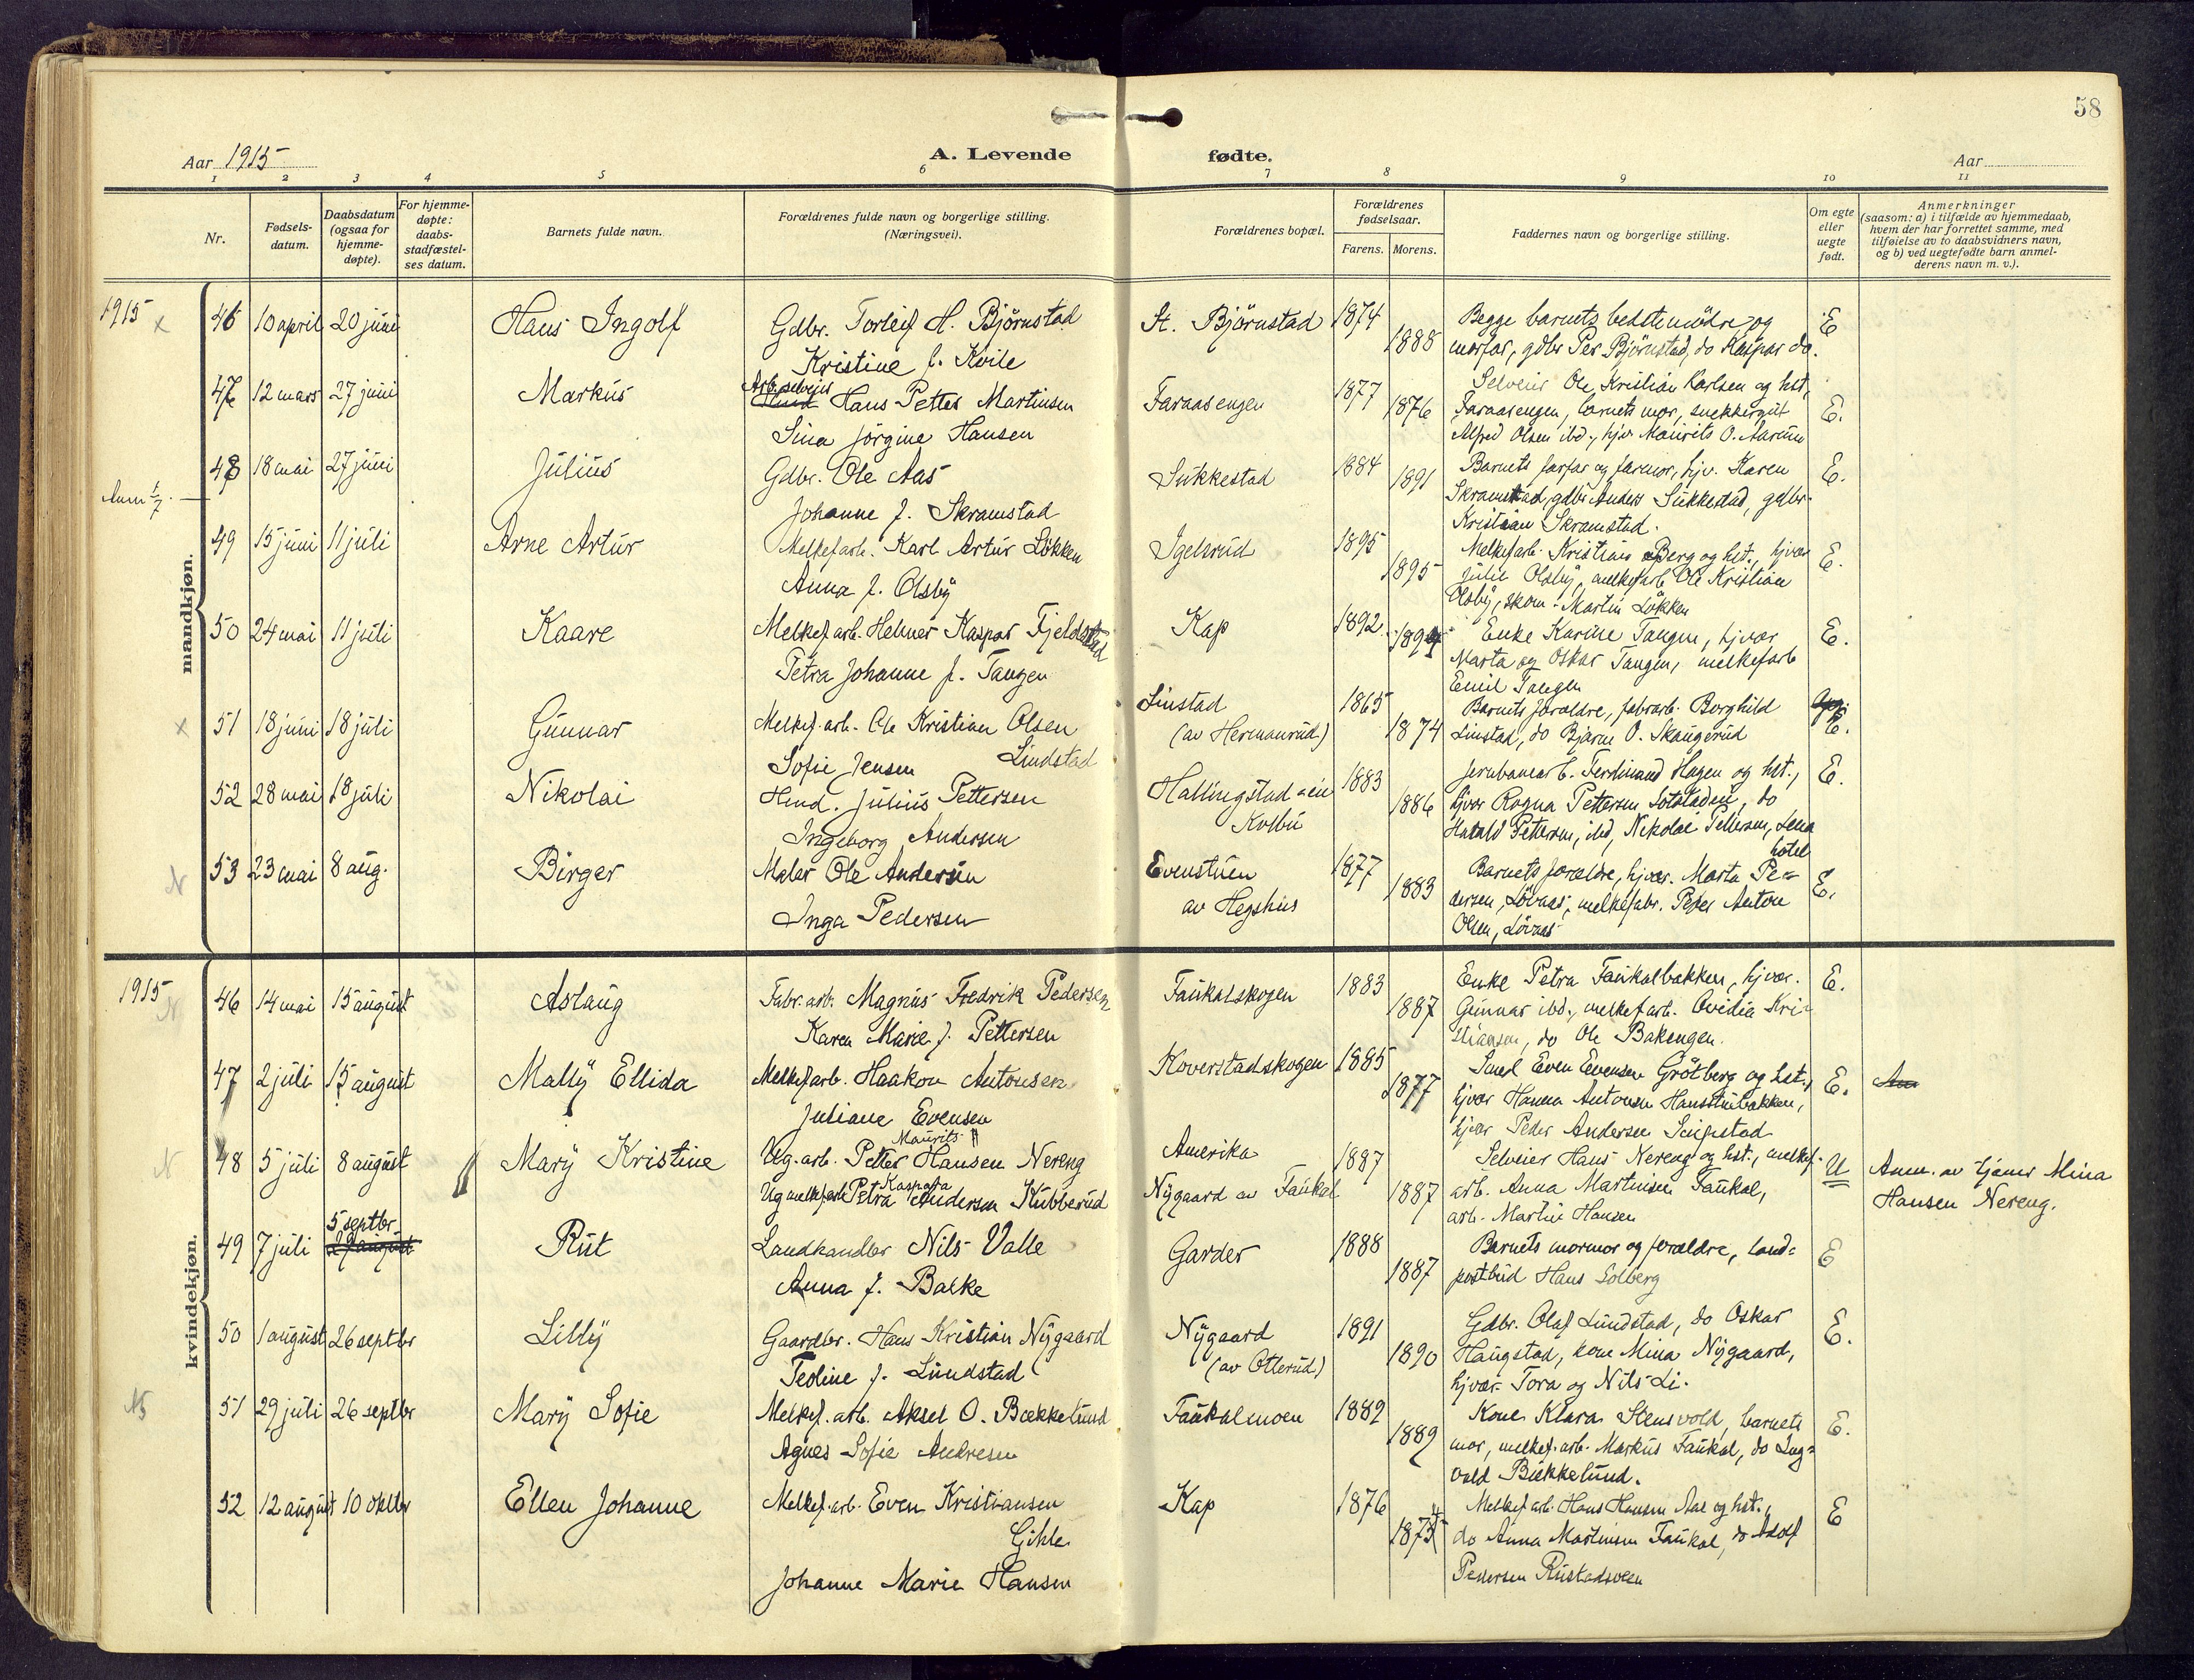 58
Aar 1915
A. Levende
fødte.
Aar
1 2 3 4 5 6 7 8 9 10 11
Nr.
Fødsels-
datum.
Daabsdatum
(ogsaa for
hjemme-
døpte).
For hjemme-
døpte:
daabs-
stadfæstel-
ses datum.
Barnets fulde navn.
Forældrenes fulde navn og borgerlige stilling.
(Næringsvei).
Forældrenes bopæl.
Forældrenes
fødselsaar.
Farens. Morens.
Faddernes navn og borgerlige stilling.
Om egte
eller
uegte
født.
Anmerkninger
(saasom: a) i tilfælde av hjemmedaab,
hvem der har forrettet samme, med
tilføielse av to daabsvidners navn,
og b) ved uegtefødte barn anmel-
derens navn m. v.).
mandkjøn.
1915 x
46 10 april 20 juni Hans Ingolf Gdbr. Torleif H. Björnstad St. Björnstad 1874 Begge barnets bedstemödre og E
Kristine f. Kvile 1888 morfar, gdbr Per Björnstad, do Kaspar do.
47 12 mars 27 juni Markus Arb. selveier Hans Petter Martinsen Faraasengen 1877 Selveier Ole Kristian Karlsen og hst, E.
Sina Jörgine Hansen 1876 Faraasengen, barnets mor, snekkergut
Alfred Olsen ibd., hjv. Maurits O.
48 18 mai 27 juni Julius Gdbr. Ole Aas Sukkestad 1884 Barnets farfar og farmor, hjv. Karen E.
Johanne f. Skramstad 1891 Skramstad, gdbr Anders Sukkestad, gdbr.
Kristian Skramstad.
49 15 juni 11 juli Arne Artur Melkefarb. Karl Artur Løkken Igelsrud 1895 Melkefarb. Kristian Berg og hst., hjvær E.
Anna f. Olsby 1895 Julie Olsby, melkefarb Ole Kristian
Olsby, skom. Martin Løkken
50 24 mai 11 juli Kaare Melkefarb. Helmer Kaspar Fjeldstad Kap 1892 Enke Karine Tangen, hjvær E.
Petra Johanne f. Tangen 1894 Marta og Oskar Tangen, melkefarb
Emil Tangen
x 51 18 juni 18 juli Gunnar Melkef. arb. Ole Kristian Olsen Linstad 1865 Barnets forældre, fabrarb. Borghild E.
Lindstad (av Hermanrud)
Sofie Jensen 1874 Linstad, do Bjarne O. Skaugerud
52 28 mai 18 juli Nikolai Hmd. Julius Pettersen Hallingstad eie 1883 Jernbanearb. Ferdinand Hagen og hst., E.
Kolbu
Ingeborg Andersen 1886 hjvær Ragna Pettersen Sotstadeie, do
Harald Pettersen, ibd, Nikolai Pettersen, Lena
hotel
N 53 23 mai 8 aug. Birger Maler Ole Andersen Evenstuen 1877 Barnets forældre, hjvær. Marta Pe- E.
av Hegshus
Inga Pedersen 1883 dersen, Lövaas, melkefabr. Peder Anton
Olsen, Lövaas
kvindekjøn.
1915 N
46 14 mai 15 august Aslaug Fabr. arb. Magnus Fredrik Pedersen Faukalskogen 1883 Enke Petra Faukalbakken, hjvær. E.
Karen Marie f. Pettersen 1887 Gunnar ibd., melkefarb. Ovidia Kri-
stiansen, do Ole Bakengen.
47 2 juli 15 august Mally Ellida Melkefarb. Haakon Antonsen Koverstadskogen 1885 Smed Even Evensen Grötberg og hst., E.
Juliane Evensen 1877 hjvær Hanna Antonsen Hansstubakken,
hjvær Peder Andersen
N 48 5 juli 8 august Mary Kristine Ug. arb. Petter Maurits Hansen Nereng Amerika 1887 Selveier Hans Nereng og hst., melkef. U Anm. av tjener Mina
Ug melkefarb Petra Kaspara Andersen Kubberud Nygaard av Faukal 1887 arb. Anna Martinsen Faukal, Hansen Nereng.
arb. Martin Hansen
49 7 juli 5 septbr Rut Landhandler Nils Valle Garder 1888 Barnets mormor og forældre, land- E
Anna f. Balke 1887 postbud Hans Solberg
50 1 august 26 septbr Lilly Gaardbr. Hans Kristian Nygaard Nygaard 1891 Gdbr. Olaf Lundstad, do Oskar E.
(av Otterud)
Teoline f. Lundstad 1890 Haugstad, kone Mina Nygaard,
hjvær Tora og Nils Li.
N 51 29 juli 26 septbr Mary Sofie Melkef. arb. Aksel O. Bækkelund Faukalmoen 1889 Kone Klara Stensvold, barnets E.
Agnes Sofie Andresen 1889 mor, melkef. arb. Markus Faukal, do Ing-
vald Bækkelund.
52 12 august 10 oktbr Ellen Johanne Melkef. arb. Even Kristiansen Kap 1876 Melkef. arb. Hans Hansen Aas og hst., E
Gihle
Johanne Marie Hansen do Anna Martinsen Faukal, do Adolf
Pedersen Rustadsveen